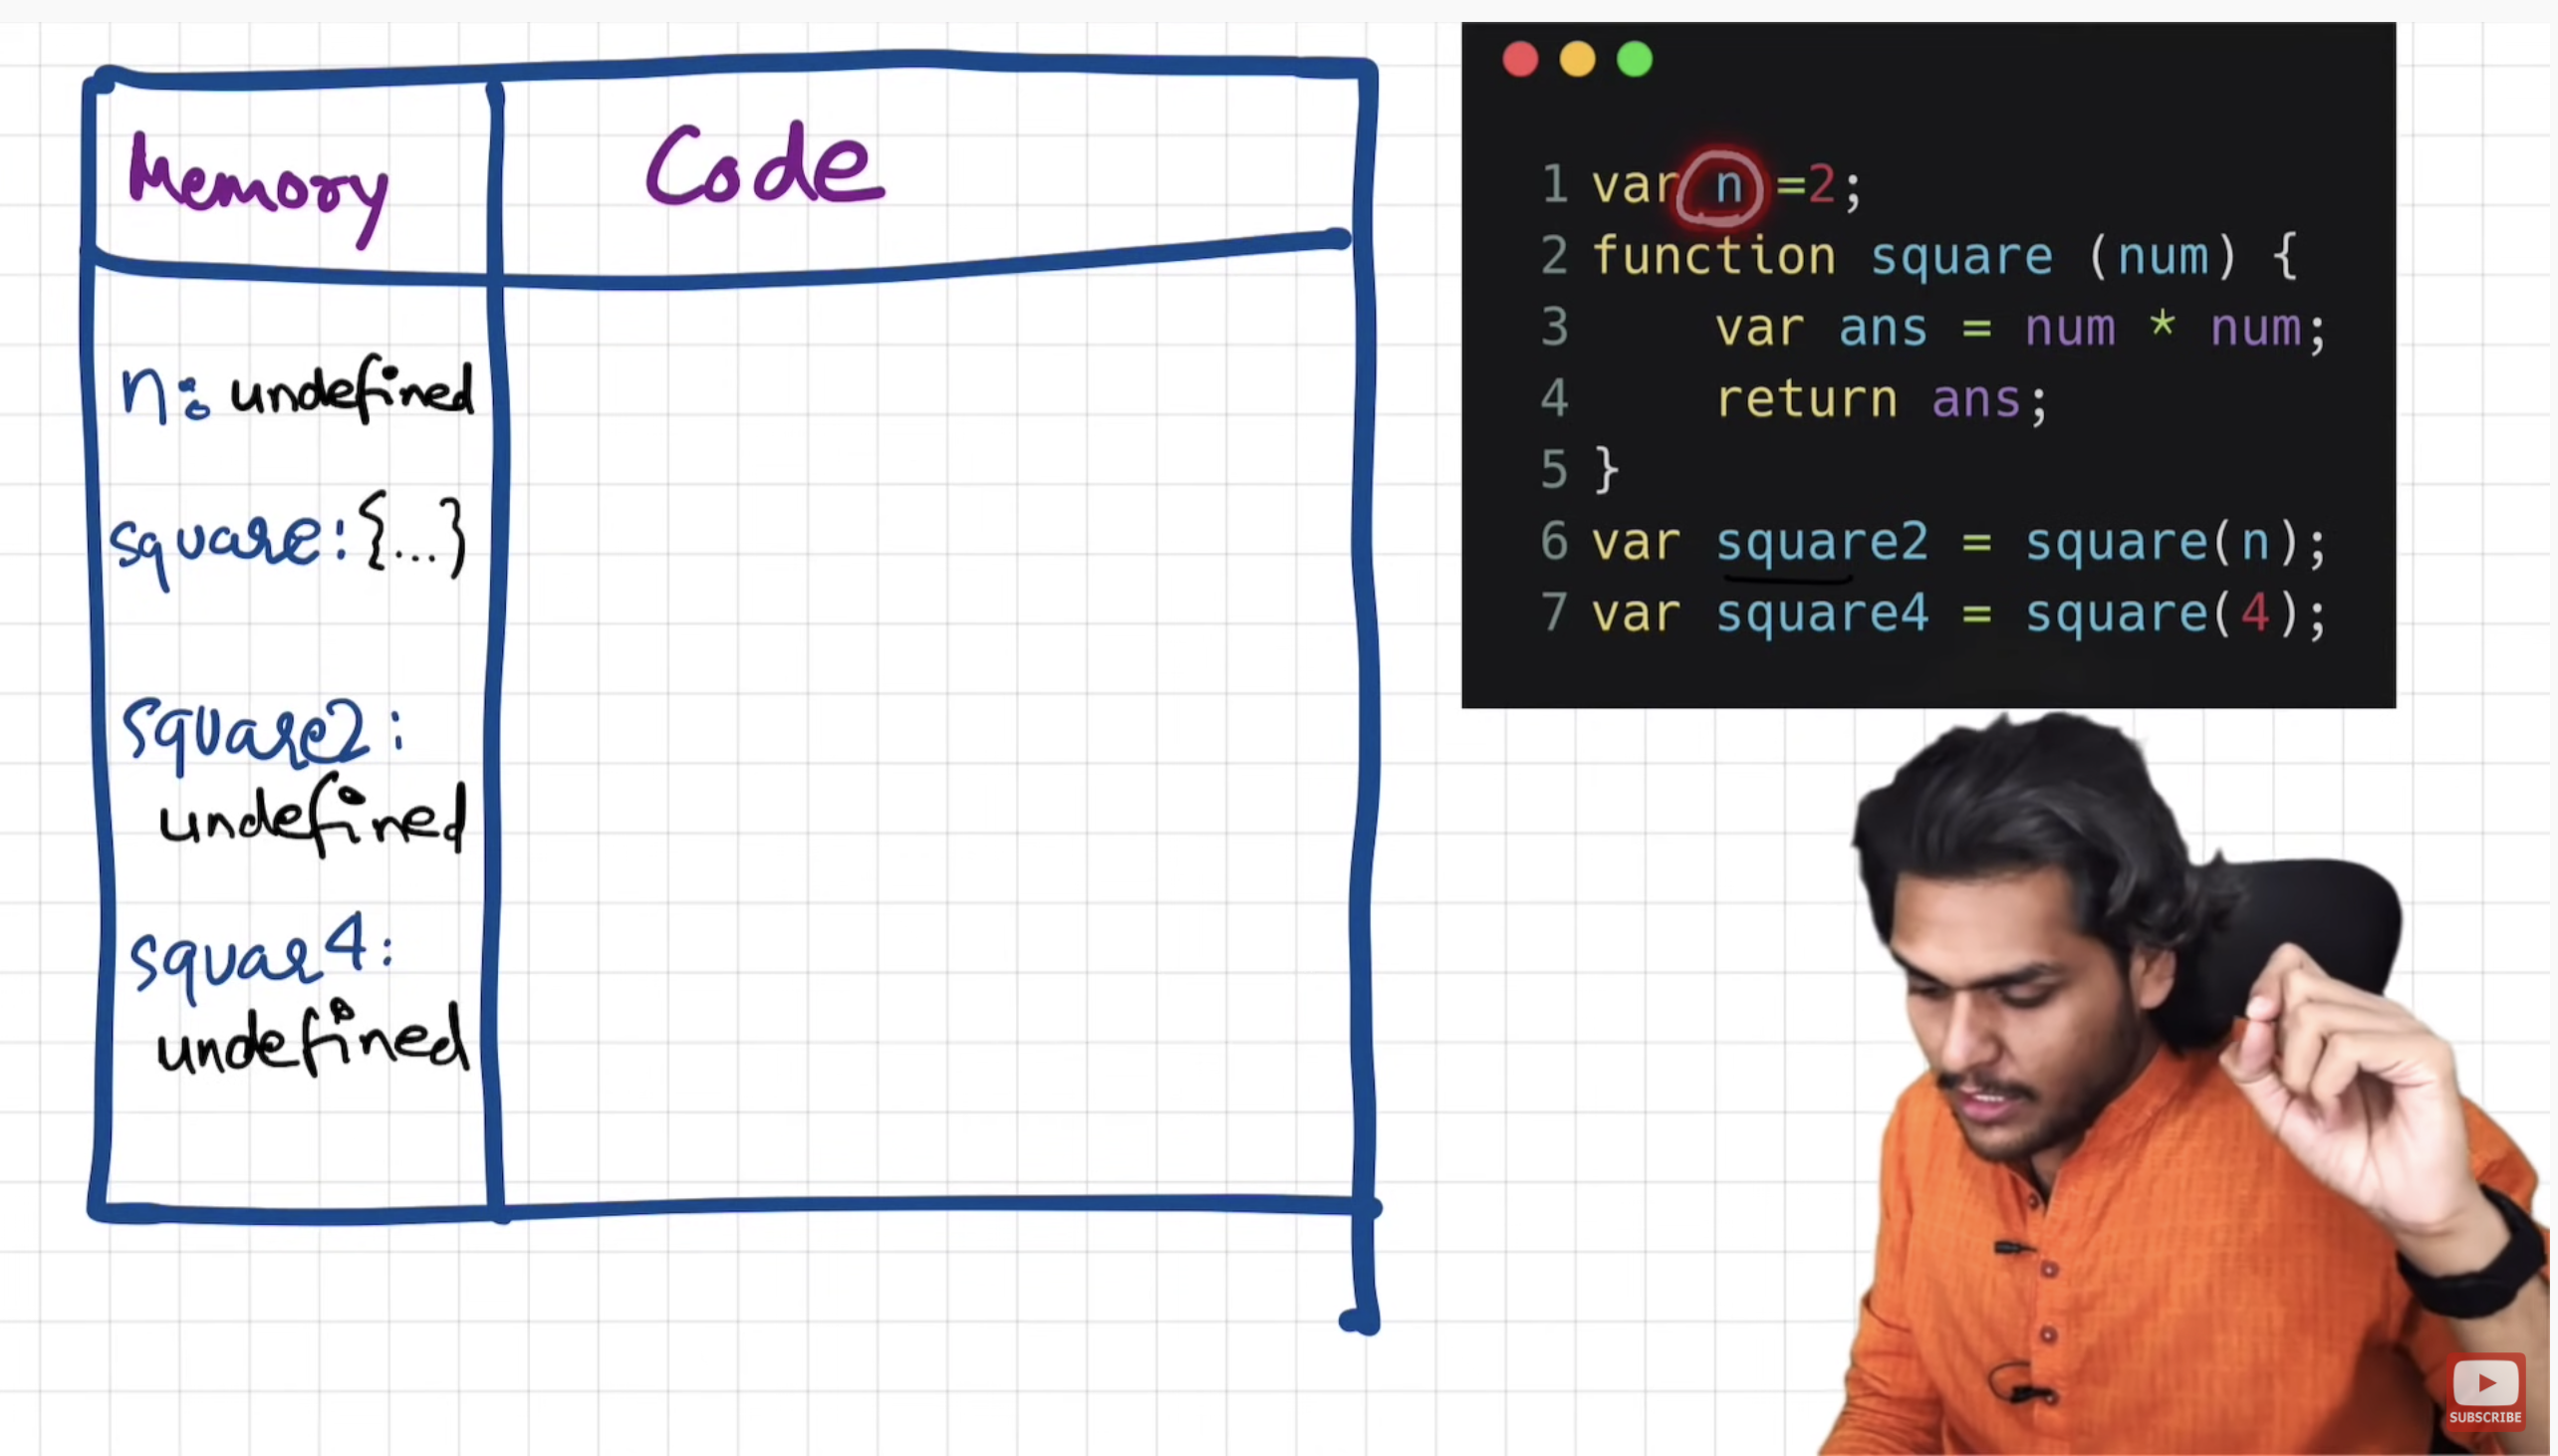 Memory
Code
n: undefined
square: {...}
square2:
undefined
squar4:
undefined
1 var n =2;
2 function square (num) {
3 var ans = num * num;
4 return ans;
5 }
6 var square2 = square(n);
7 var square4 = square(4);
SUBSCRIBE